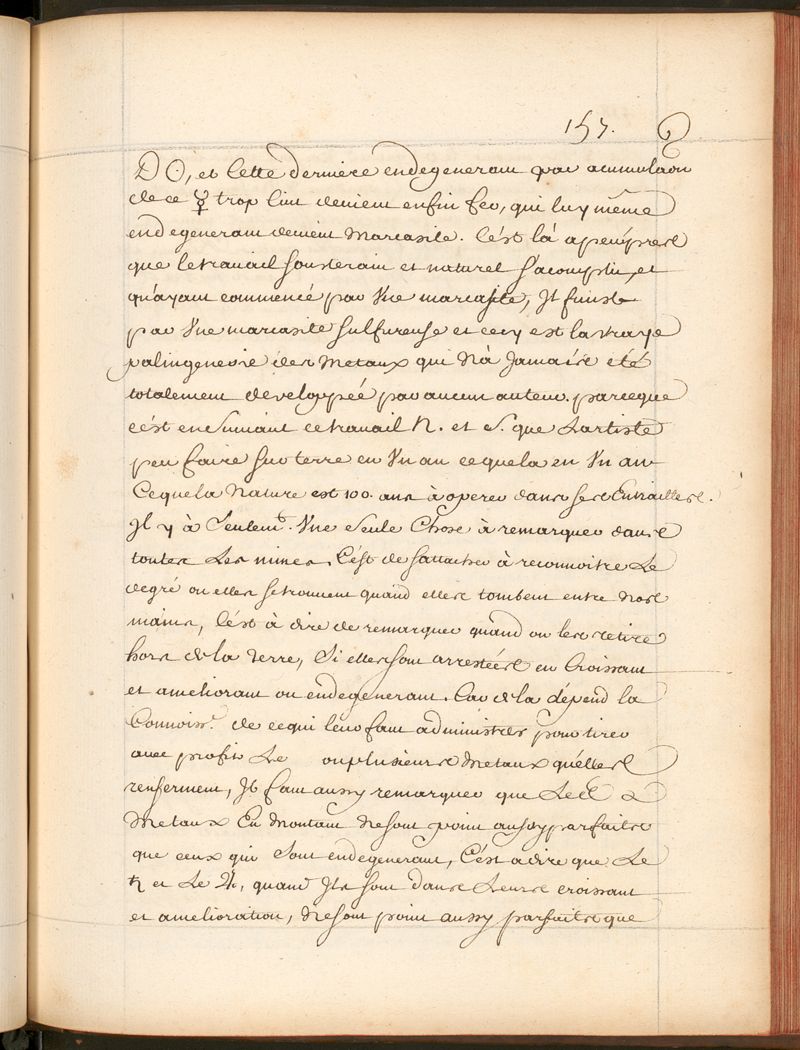 157.
D ☉, et Cette derniere endegenerant par acumulaon
de ce ☿ trop lent devient enfin fer, qui luy même
endegenerant devient Marcasite. C'est là apeuprés
que le travail souterain et naturel s'acomplit, et
qu'ayant commencé par Une marcasite, Jl finist
par Une marcasite sulfureuse et cecy est la vraye
palingenesie des Metaux qui n'à Jamais eté
totalement developpée par aucun auteur. parceque
c'est en suivant ce travail N. et S. que L'artiste
peu faire sur terre en Vn an ceque la en Vn an
Ceque la Nature est 100. ans à operer dans ses Entrailles.
Jl y à Seulemt. Vne Seule Chose à remarquer dans
toutes Les mines, C'est de s'attacher à reconnoitre Le
degré ou elles se trouvent quand elles tombent entre nos
mains, C'est à dire de remarquer quand on les retire
hors de la Terre, Si elles sont arrestées en Croissant
et ameliorant ou endegenerant. Car de la dépend la
Connoisse. de cequi leur faut administrer pour tirer
avec profit Le ou plusieurs Metaux qu'elles
renferment, Jl faut aussy remarquer que Les
Metaux En Montant ne sont point aussy parfaits
que ceux qui Sont endegenerant, C'est adire que Le
♄ et Le ♃, quand Jls sont dans Leurs croissant
et amelioration, ne sont point aussy parfaits que